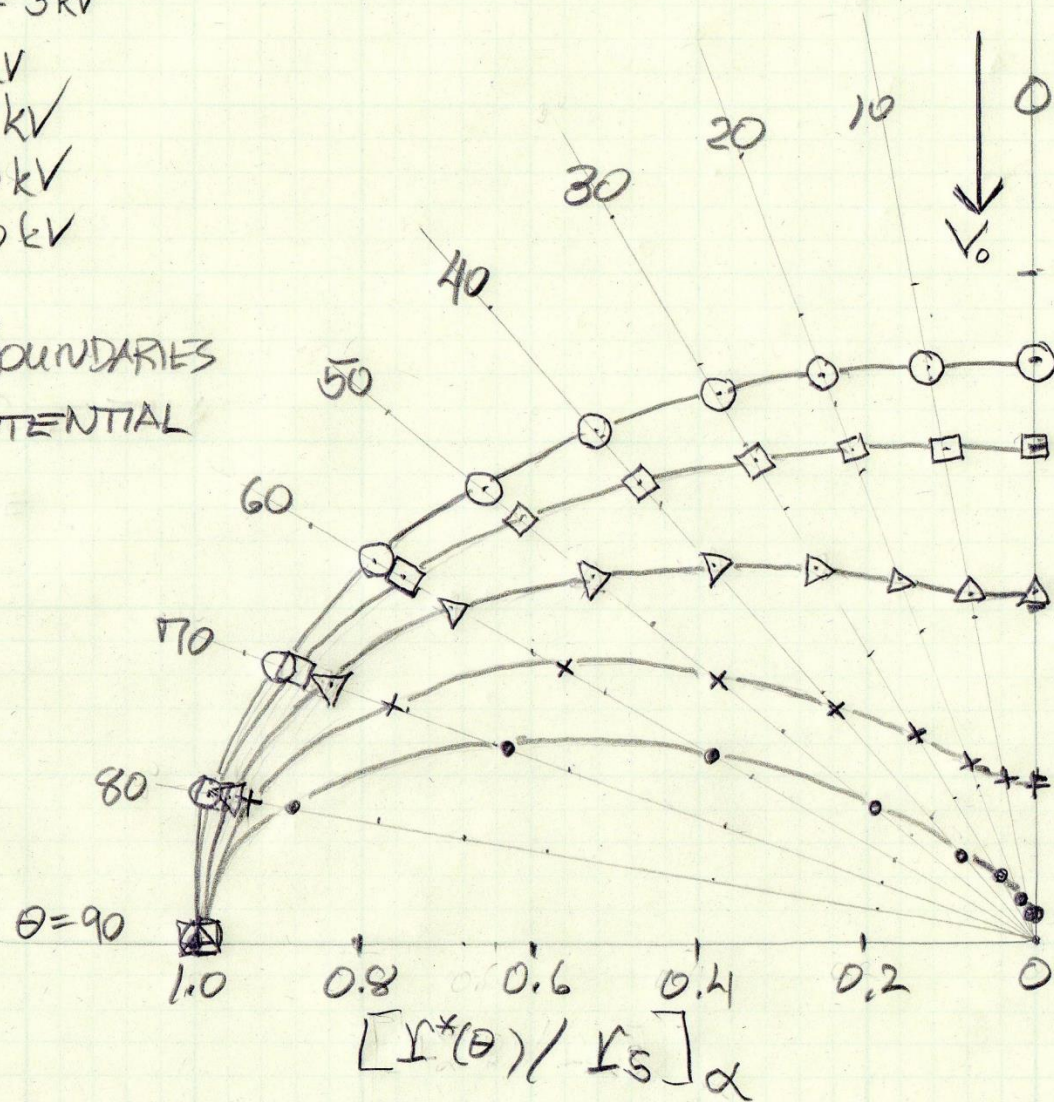 3kV
kV
kV
kV
kV
OUNDARIES
TENTIAL
0
10
20
30
40
50
60
70
80
θ=90
V₀
1.0 0.8 0.6 0.4 0.2 0
[r*(θ)/r_S]_α